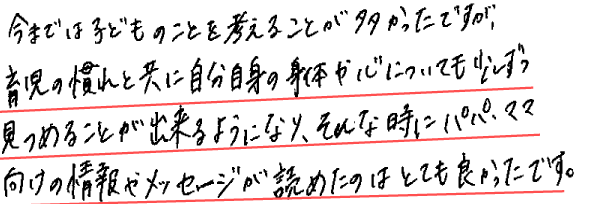 今までは子どものことを考えることが多かったですが、
育児の慣れと共に自分自身の身体や心についても少しずつ
見つめることが出来るようになり、そんな時にパパ・ママ
向けの情報やメッセージが読めたのはとても良かったです。